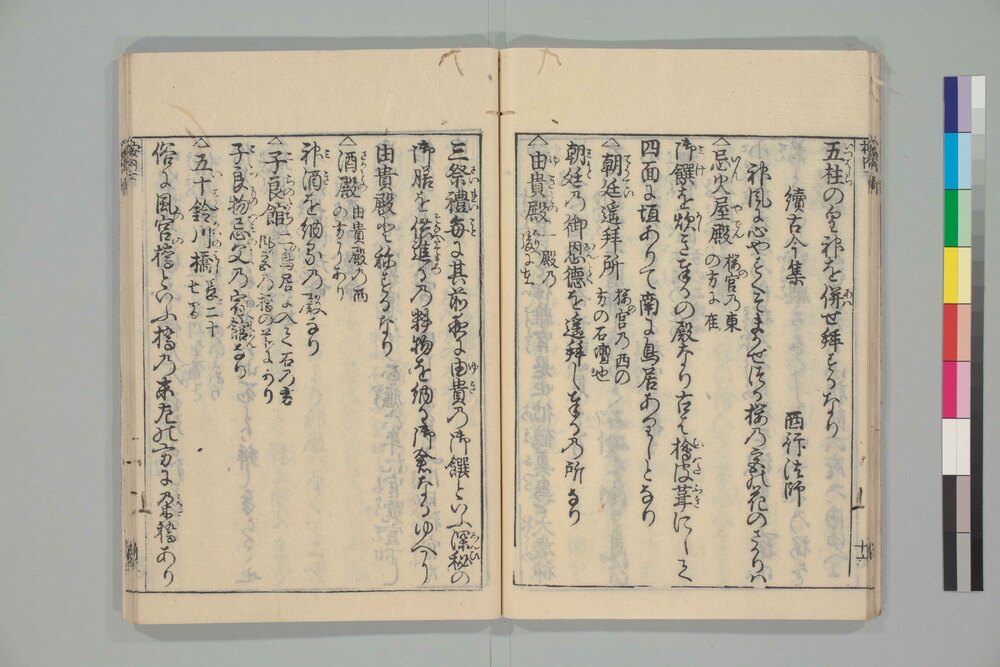 五柱の皇神を併せ拝するなり
續古今集　　　　西行法師
神風に心やすくぞまかせつる桜の宮の花のさかりハ
忌火屋殿 桜宮の東の方に在
御饌を炊き奉るの殿なり古は檜皮葺にして
四面に垣ありて南に鳥居ありしとなり
朝廷遥拝所 桜宮の西の方の石壇也
朝廷の御恩徳を遥拝し奉るの所なり
由貴殿 一殿の
三祭禮毎に其前夜に由貴の御饌といふ深秘の
御膳を供進るの料物を納る御倉なるゆへに
由貴殿と称するなり
酒殿 由貴殿の西の方にあり
神酒を納るの殿なり
子良館 二鳥居に入て右の方
子良物忌父の宿館なり
五十鈴川橋 長二十七間
俗に風宮橋といふ橋の東の方に